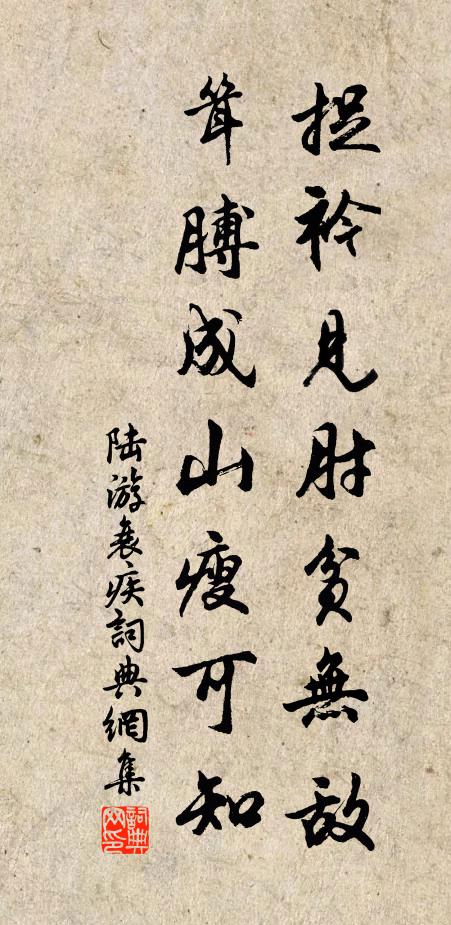 捉衿見肘貧無敵
聳膊成山瘦可知
陆游衰疾詞典網集
詞典网印